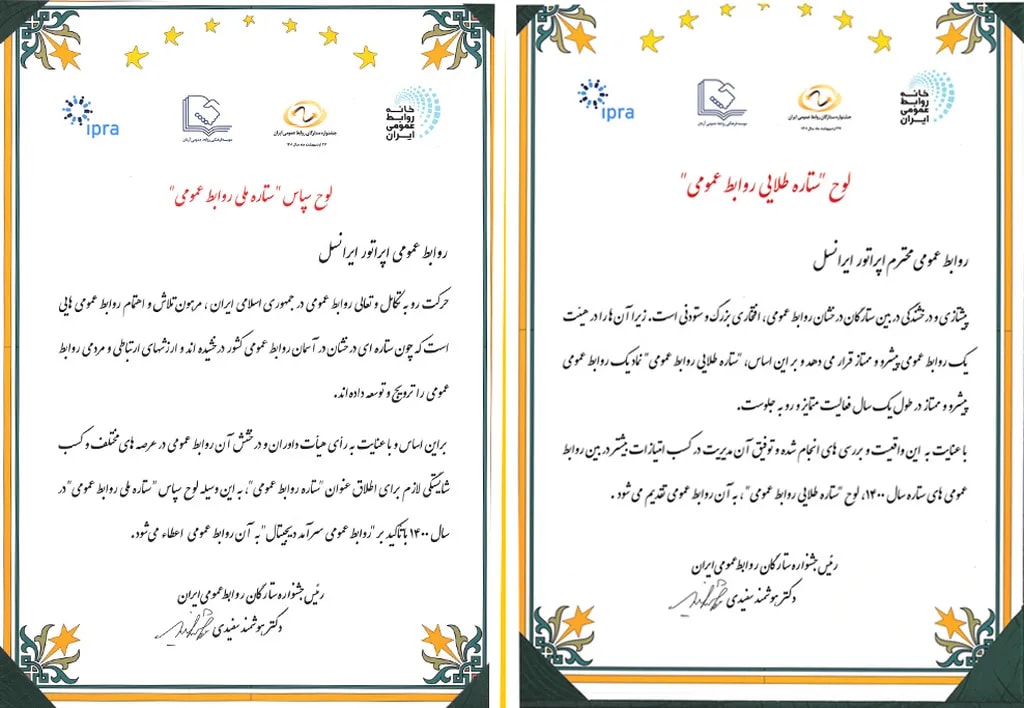 خانه
روابط
عمومی
ایران
جشنواره ستارگان روابط عمومی ایران
موسسه فرهنگی روابط عمومی آرمان
ipra
لوح "ستاره طلایی روابط عمومی"
روابط عمومی محترم اپراتور ایرانسل
پیشتازی و درخشندگی در بین ستارگان درخشان روابط عمومی، افتخاری بزرگ و ستودنی است. زیرا آن ها را در هیئت
یک روابط عمومی پیشرو و ممتاز قرار می دهد و بر این اساس، "ستاره طلایی روابط عمومی" نماد یک روابط عمومی
پیشرو و ممتاز در طول یک سال فعالیت متمایز و رو به جلوست.
با عنایت به این واقعیت و بررسی های انجام شده و توفیق آن مدیریت در کسب امتیازات بیشتر در بین روابط
عمومی های ستاره سال ۱۴۰۰، لوح "ستاره طلایی روابط عمومی"، به آن روابط عمومی تقدیم می شود .
رئیس جشنواره ستارگان روابط عمومی ایران
دکتر هوشمند سفیدی
خانه
روابط
عمومی
ایران
جشنواره ستارگان روابط عمومی ایران
موسسه فرهنگی روابط عمومی آرمان
ipra
لوح سپاس "ستاره ملی روابط عمومی"
روابط عمومی اپراتور ایرانسل
حرکت رو به تکامل و تعالی روابط عمومی در جمهوری اسلامی ایران ، مرهون تلاش و اهتمام روابط عمومی هایی
است که چون ستاره ای درخشان در آسمان روابط عمومی کشور درخشیده اند و ارزشهای ارتباطی و مردمی روابط
عمومی را ترویج و توسعه داده اند.
براین اساس و با عنایت به رأی هیأت داوران و درخشش آن روابط عمومی در عرصه های مختلف و کسب
شایستگی لازم برای اطلاق عنوان "ستاره روابط عمومی"، به این وسیله لوح سپاس "ستاره ملی روابط عمومی" در
سال ۱۴۰۰ با تاکید بر "روابط عمومی سرآمد دیجیتال" به آن روابط عمومی اعطاء می شود.
رئیس جشنواره ستارگان روابط عمومی ایران
دکتر هوشمند سفیدی